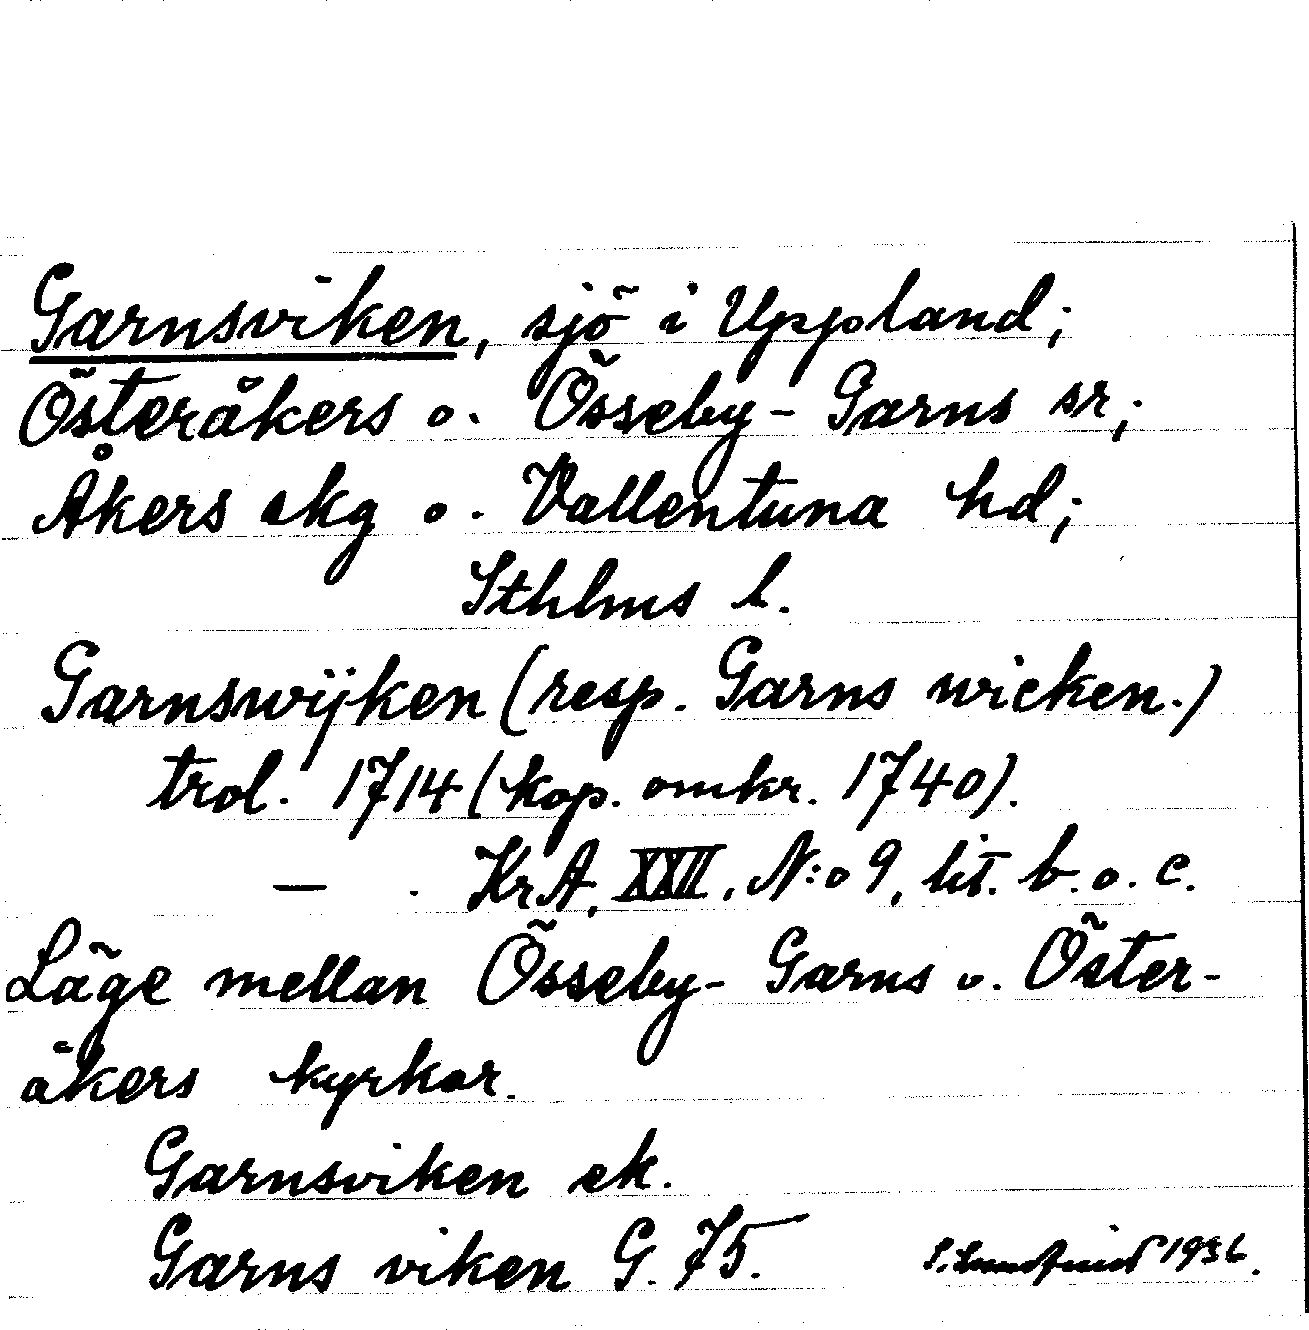 Garnsviken, sjö i Uppland;
Österåkers o. Össeby-Garns sr;
Åkers skg o. Vallentuna hd;
Sthlms l.
Garnswijken (resp. Garns wicken.)
trol. 1714 (kop. omkr. 1740).
— . KrA, XXII, N:o 9, lit. b. o. c.
Läge mellan Össeby-Garns o. Öster-
åkers kyrkor.
Garnsviken ek.
Garns viken G. 75.
1936.